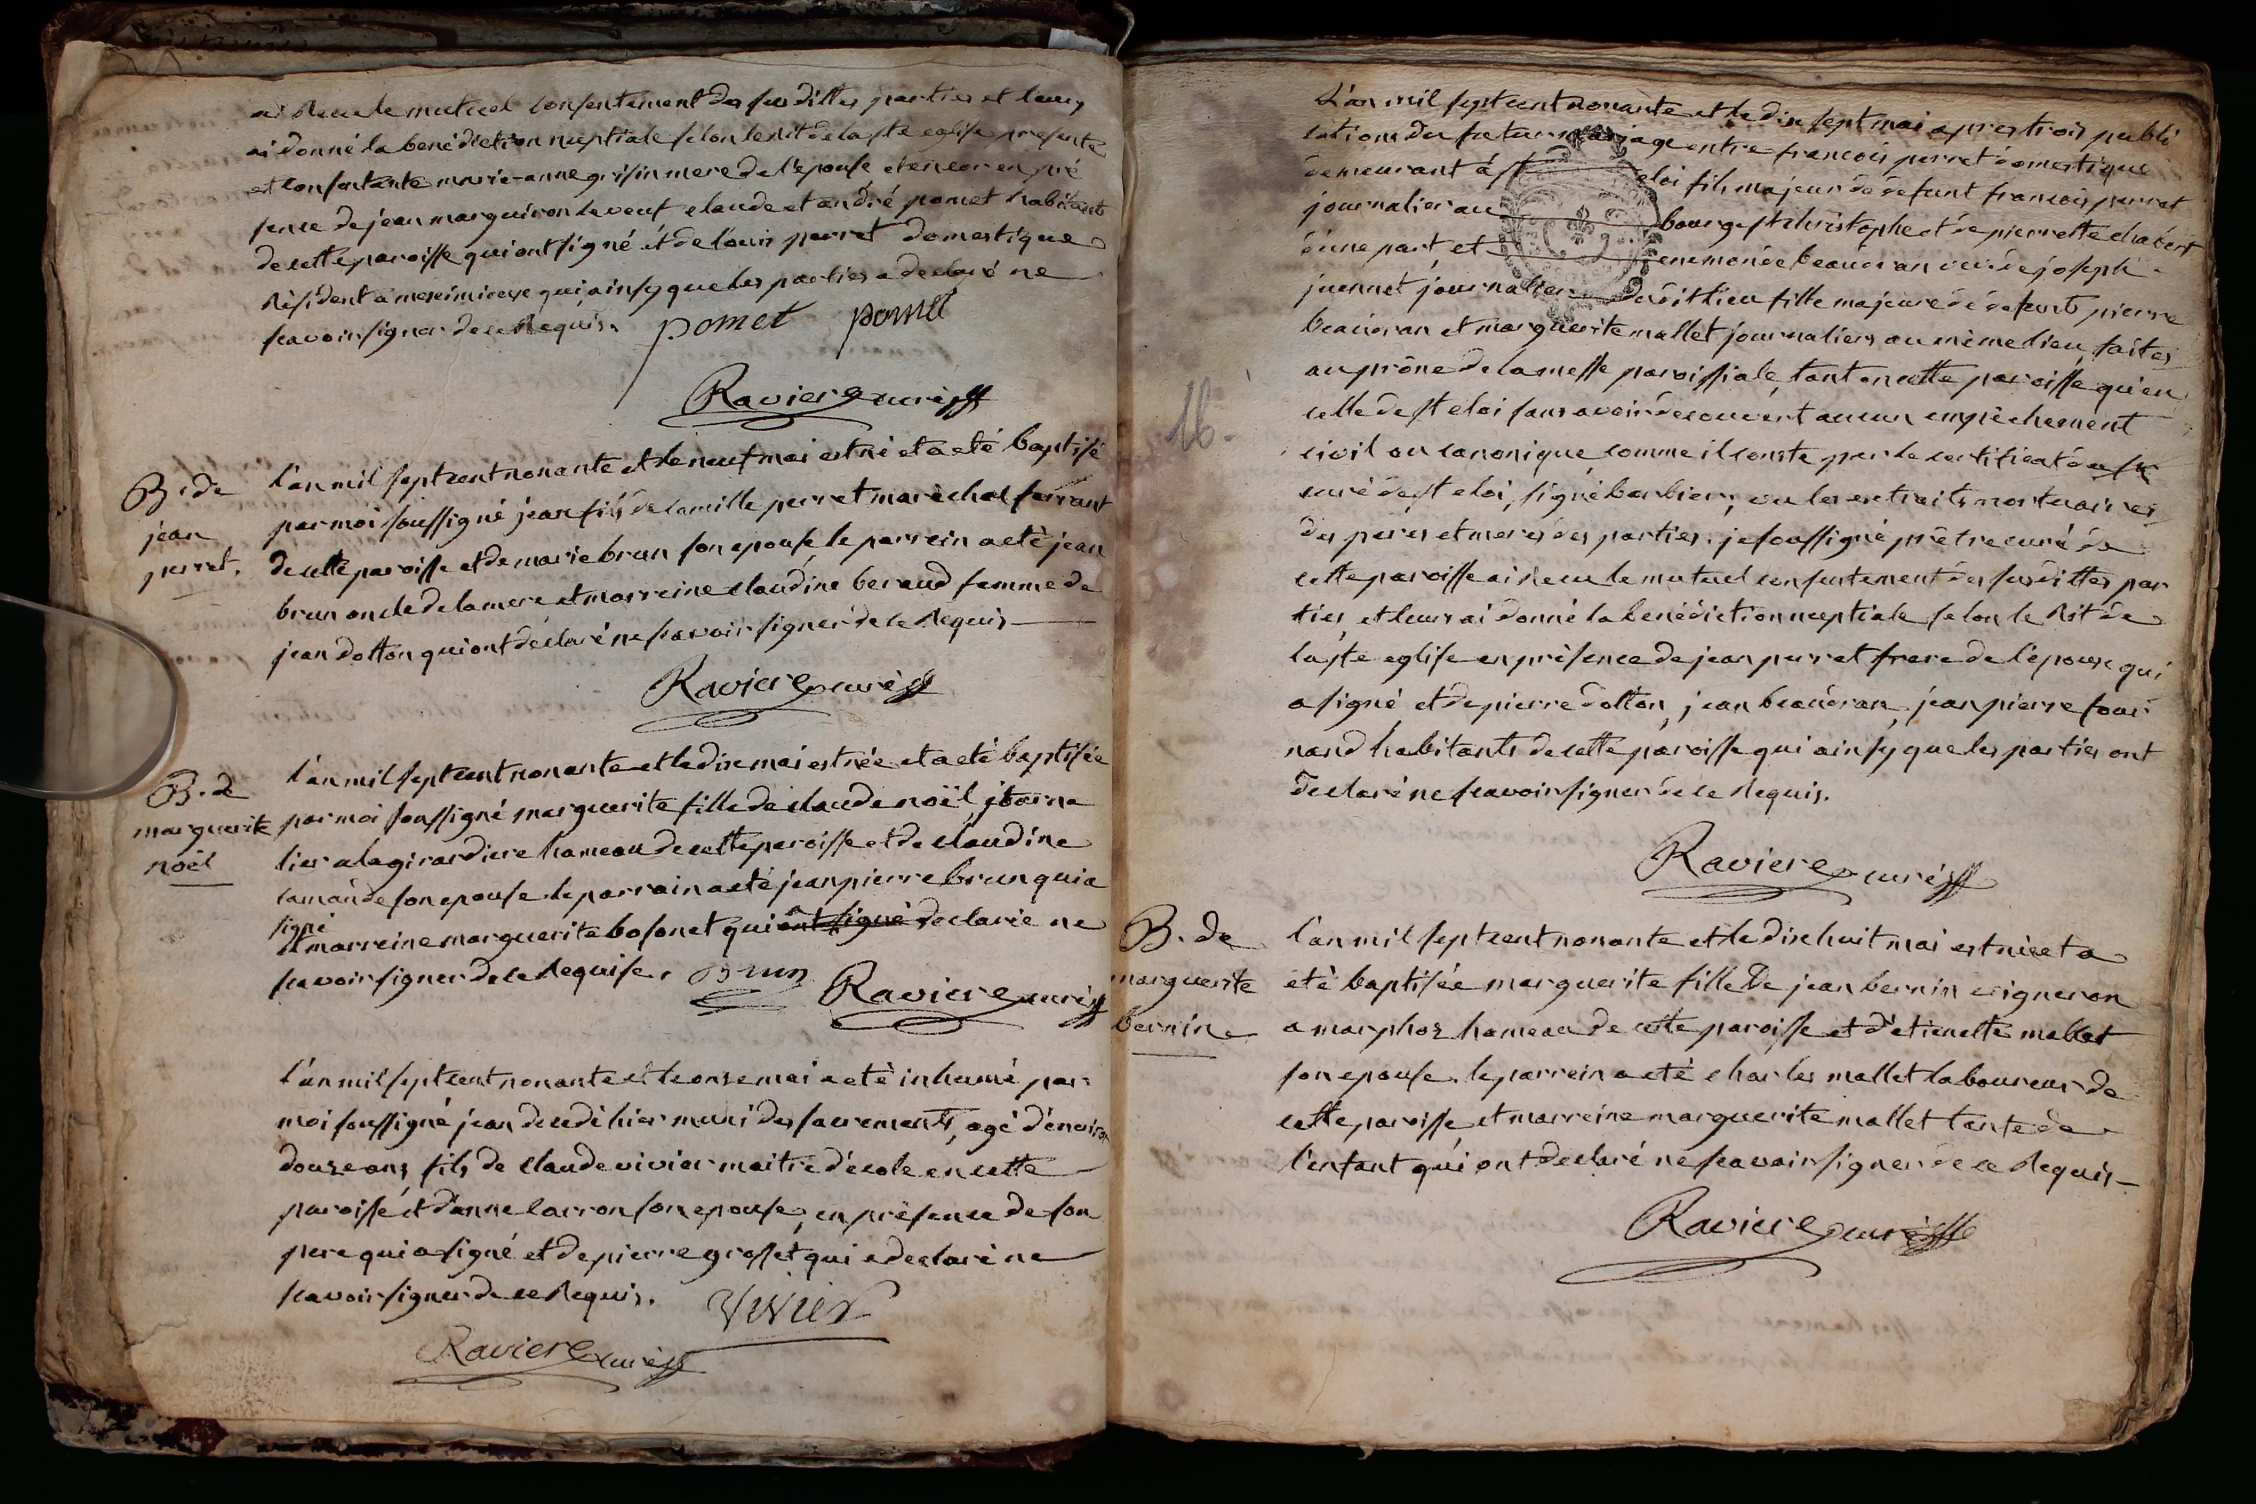 ai Recu le mutuel consentement des susdittes parties et leurs
ai donné la benédiction nuptiale selon le Rit de la ste eglise presente
et consentante marie-anne grisin mere de l'epouse et encor en pré
sence de jean marguiron le veuf, claude et andré pomet habitants
de cette paroisse qui ont signé et de louis perret domestique
Résident a meximieux qui ainsy que les parties a declaré ne
scavoir signer de ce Requis. pomet pomet
Raviere curé
B. de
jean
perret.
l'an mil sept cent nonante et le neuf mai est né et a eté baptisé
par moi soussigné jean fils de camille perret marèchal ferrant
de cette paroisse et de marie brun son epouse le parrein a etè jean
brun oncle de la mere, et marreine claudine beraud femme de
jean dotton qui ont declaré ne scavoir signer de ce Requis
Raviere curé
B. de
marguerite
noël
l'an mil sept cent nonante et le dix mai est née et a eté baptisée
par moi soussigné marguerite fille de claude noël, journa
lier a la girardiere hameau de cette paroisse et de claudine
son epouse le parrain a eté jean pierre brun qui a
signé
et marreine marguerite bosonet qui ont signé declarée ne
scavoir signer de ce Requise. Brun
Raviere curé
l'an mil sept cent nonante et le onze mai a etè inhumé par
moi soussigné jean decedé hier muni des sacrements, agé d'environ
douze ans, fils de claude vivier maitre d'école en cette
paroisse et d'anne carron son epouse, en présence de son
pere qui a signé et de pierre grosset qui a declaré ne
scavoir signer de ce Requis. Vivier
Raviere curé
16.
L'an mil sept cent nonante et le dix sept mai apres trois publi
cations du futur mariage entre francois perret domestique
demeurant à st eloi fils majeur de defunt francois perret
journalier au bourg st christophe et de pierrette chabert
d'une part, et enemonde beaudran veuve de joseph
juennet journalier dudit lieu fille majeure de defunts pierre
beaudran et marguerite mallet journaliers au même lieu, faites
au prône de la messe paroissiale, tant en cette paroisse qu'en
celle de st eloi sans avoir decouvert aucun empêchement
civil ou canonique, comme il conste par le certificat du sr
curé de st eloi, signé barbier, vu les extraits mortuaires
des peres et meres des parties. je soussigné prêtre curé de
cette paroisse ai Recu le mutuel consentement des susdittes par
ties, et leurs ai donné la benédiction nuptiale selon le Rit de
la ste eglise en présence de jean perret frere de l'epoux qui
a signé et de pierre dotton, jean beaudran, jean pierre four
nand habitants de cette paroisse qui ainsy que les parties ont
declaré ne scavoir signer de ce Requis.
Raviere curé
B. de
marguerite
bernin
l'an mil sept cent nonante et le dix huit mai est née et a
etè baptisée marguerite fille de jean bernin vigneron
a marphoz hameau de cette paroisse et d'etienette mallet
son epouse. le parrein a eté charles mallet laboureur de
cette paroisse et marreine marguerite mallet tante de
l'enfant qui ont declaré ne scavoir signer de ce Requis
Raviere curé